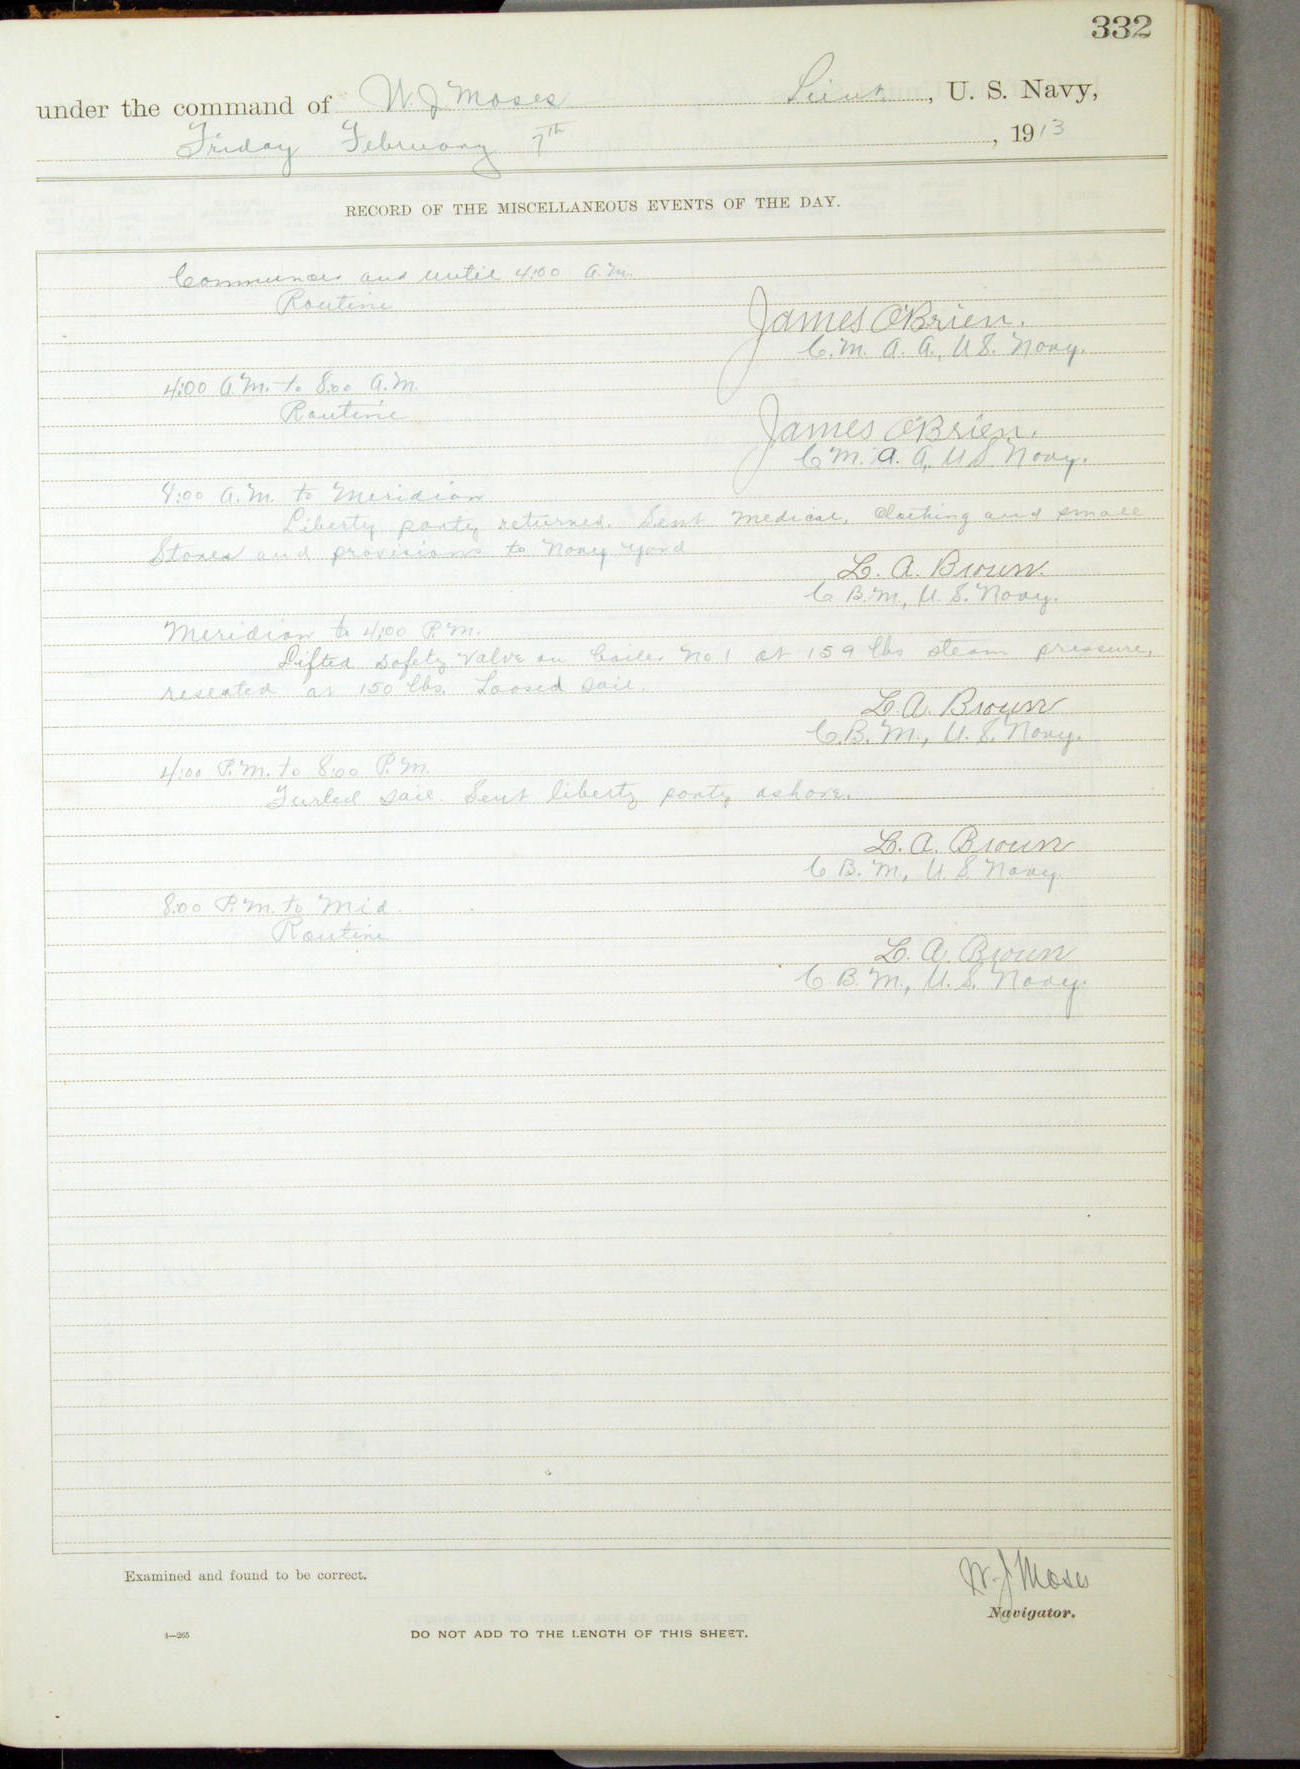 332
under the command of W. J Moses Lieut., U. S. Navy,
Friday February 7th, 1913
RECORD OF THE MISCELLANEOUS EVENTS OF THE DAY.
Commences and until 4:00 a.m.
Routine
James O'Brien.
C. M. A. A., U. S. Navy.
4:00 A.M. to 8:00 A.M.
Routine
James O'Brien.
C. M. A. A., U. S. Navy.
8:00 A.M. to Meridian
Liberty party returned. Sent medical, clothing and small
Stores and provisions to Navy Yard
L. A. Brown.
C. B. M., U. S. Navy.
Meridian to 4:00 P.M.
Lifted safety valve on boiler No 1 at 159 lbs steam pressure,
reseated at 150 lbs. Loosed sail.
L. A. Brown
C. B. M., U. S. Navy.
4:00 P.M. to 8:00 P.M.
Furled sail. Sent liberty party ashore.
L. A. Brown
C. B. M., U. S. Navy.
8:00 P.M. to Mid.
Routine
L. A. Brown
C. B. M., U. S. Navy.
Examined and found to be correct.
W. J Moses
Navigator.
4—265
DO NOT ADD TO THE LENGTH OF THIS SHEET.